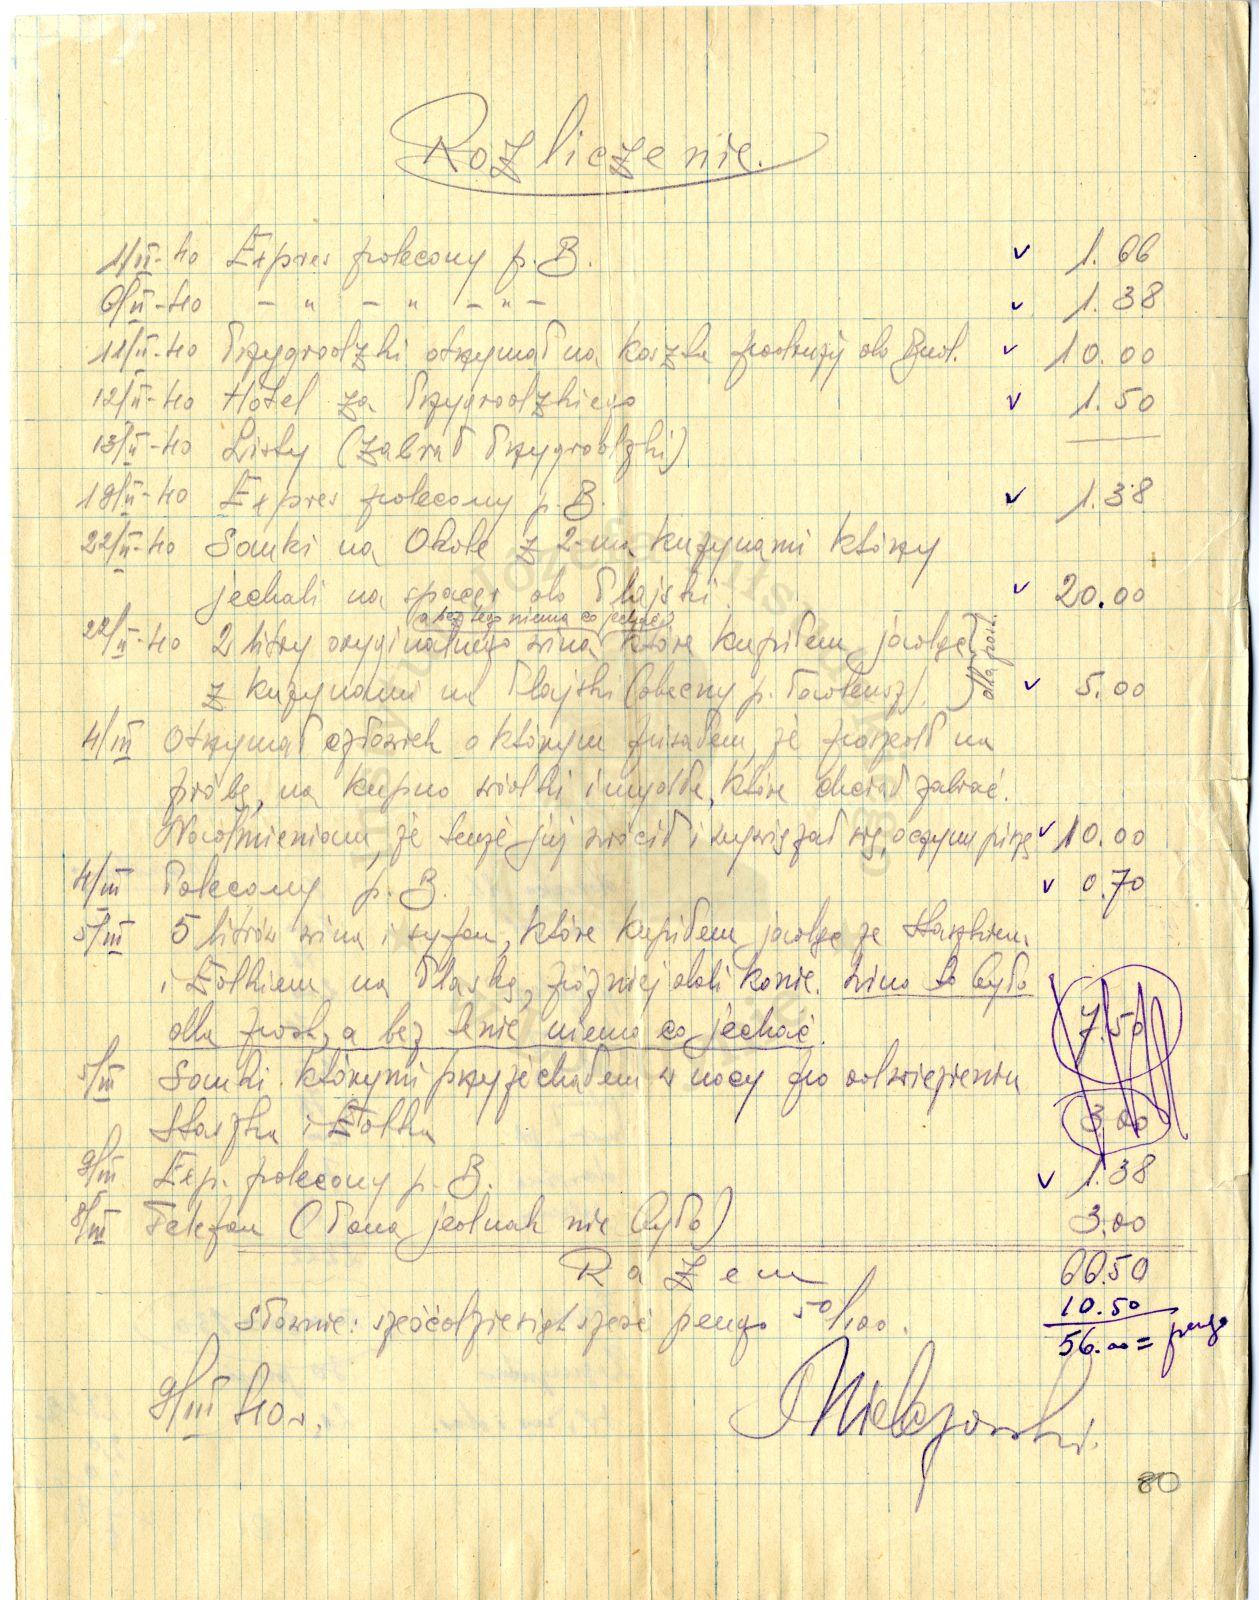 Rozliczenie.
1/II-40 Expres polecony p. B. v 1.66
6/II-40 – " – " – " – v 1.38
11/II-40 Przygrodzki otrzymał na koszta podróży do Bud. v 10.00
12/II-40 Hotel za Przygrodzkiego v 1.50
13/II-40 Listy (zabrał Przygrodzki) —
18/II-40 Expres polecony p. B. v 1.38
22/II-40 Sanki na Okole z 2-ma kuzynami którzy
jechali na spacer do Plajski v 20.00
(a bez tego niema co jechać)
22/II-40 2 litry oryginalnego wina które kupiłem jadąc dla post.
z kuzynami na Plajski (obecny p. ). v 5.00
4/III Otrzymał człowiek o którym pisałem, że poszedł na
próbę, na kupno wódki i mydła, które chciał zabrać.
Nadmieniam, że tenże już wrócił i wywiązał się, o czym piszę v 10.00
4/III Polecony p. B. v 0.70
5/III 5 litrów wina i syfon, które kupiłem jadąc ze Staszkiem
i Lolkiem na Plaskę, później dali konie. Wino to było
dla post, a bez tenie niema co jechać. 7.50
5/III Sanki którymi przyjechałem w nocy po odwiezieniu
Staszka i Lolka 3.00
9/III Exp. polecony p. B. v 1.38
8/III Telefon (Pana jednak nie było) 3.00
Razem 66.50
10.50
Słownie: sześćdziesiąt sześć pengo 50/100.
56.00 = pengo
9/III 40 r.
80